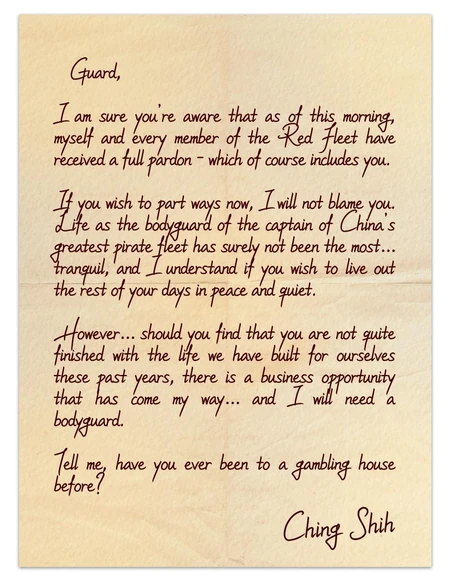 Guard,
I am sure you're aware that as of this morning,
myself and every member of the Red Fleet have
received a full pardon - which of course includes you.
If you wish to part ways now, I will not blame you.
Life as the bodyguard of the captain of China's
greatest pirate fleet has surely not been the most...
tranquil, and I understand if you wish to live out
the rest of your days in peace and quiet.
However... should you find that you are not quite
finished with the life we have built for ourselves
these past years, there is a business opportunity
that has come my way... and I will need a
bodyguard.
Tell me, have you ever been to a gambling house
before?
Ching Shih